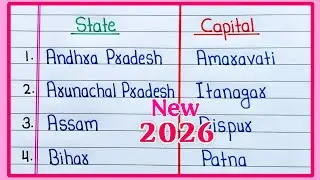 State Capital
1. Andhra Pradesh Amaravati
2. Arunachal Pradesh Itanagar
New
3. Assam Dispur
2026
4. Bihar Patna